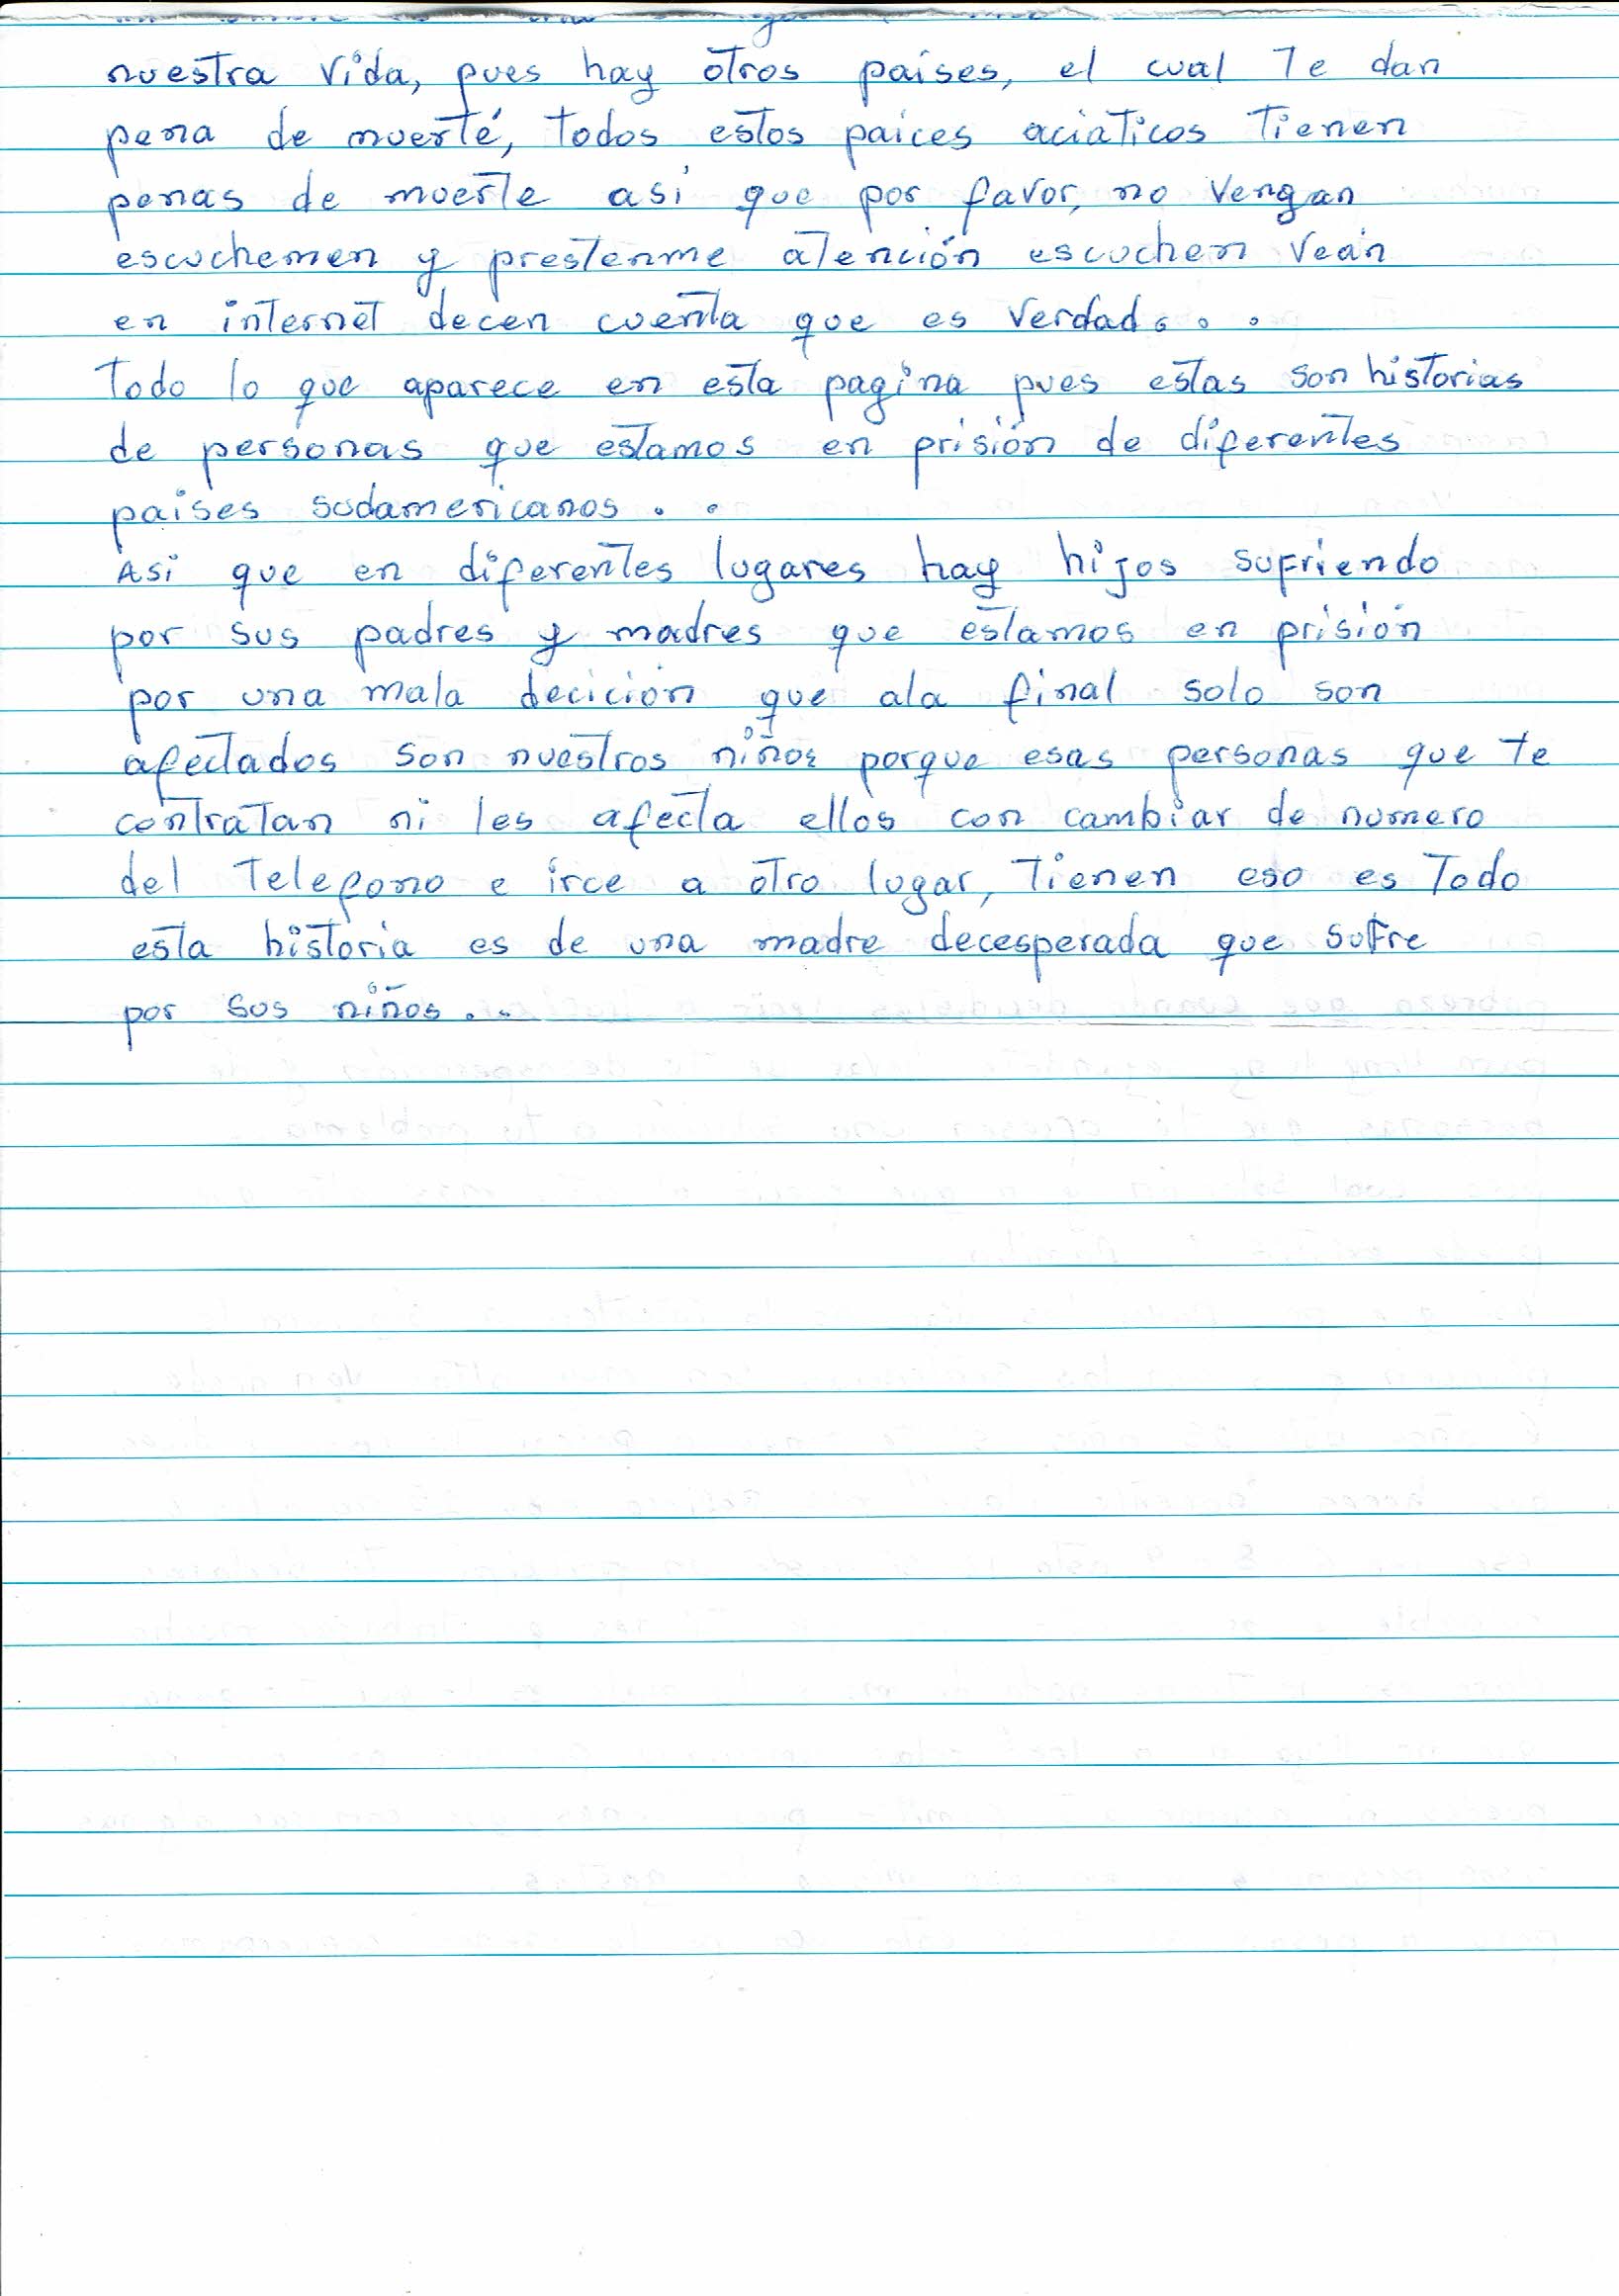 nuestra vida, pues hay otros países, el cual Te dan
pena de muerté, todos estos paices aciaticos Tienen
penas de muerte asi que por favor, no vengan
escuchemen y prestenme atención escuchen vean
en internet decen cuenta que es verdad...
Todo lo que aparece en esta pagina pues estas son historias
de personas que estamos en prisión de diferentes
paises sudamericanos..
Asi que en diferentes lugares hay hijos sufriendo
por sus padres y madres que estamos en prisión
por una mala decición que ala final solo son
afectados son nuestros niños porque esas personas que te
contratan ni les afecta ellos con cambiar de numero
del Telefono e irce a otro lugar, Tienen eso es Todo
esta historia es de una madre decesperada que sufre
por sus niños...